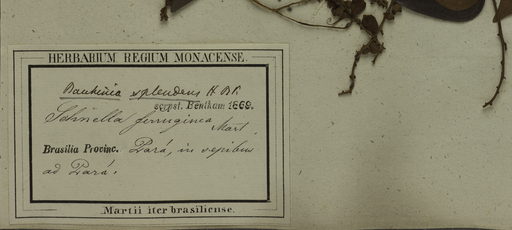 HERBARIUM REGIUM MONACENSE.
Bauhinia splendens H.B.K.
scrpst. Bentham 1869.
Schnella ferruginea
Mart.
Brasilia Provinc. Pará, in sepibus
ad Pará.
Martii iter brasiliense.